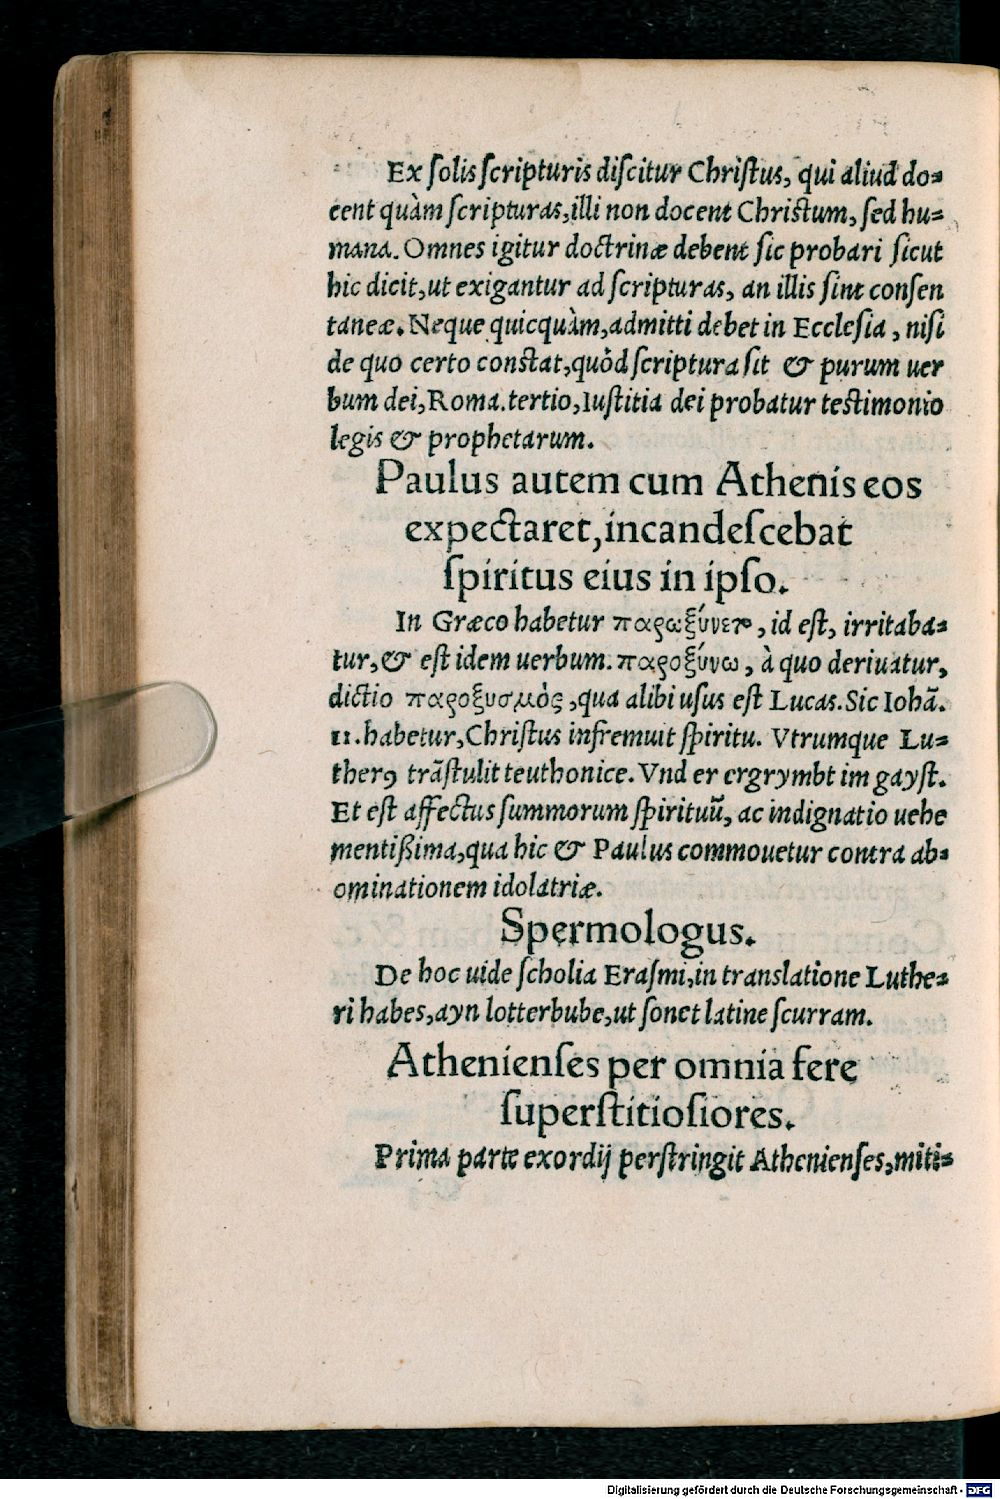 Ex ſolis ſcripturis diſcitur Chriſtus, qui aliud do⸗
cent quàm ſcripturas, illi non docent Chriſtum, ſed hu⸗
mana. Omnes igitur doctrinæ debent ſic probari ſicut
hic dicit, ut exigantur ad ſcripturas, an illis ſint conſen
taneæ. Neque quicquàm, admitti debet in Eccleſia, niſi
de quo certo conſtat, quòd ſcriptura ſit & purum uer
bum dei, Roma. tertio, Iuſtitia dei probatur teſtimonio
legis & prophetarum.
Paulus autem cum Athenis eos
expectaret, incandeſcebat
ſpiritus eius in ipſo.
In Græco habetur παρωξύνετο, id eſt, irritaba⸗
tur, & eſt idem uerbum. παροξύνω, à quo deriuatur,
dictio παροξυσμὸς, qua alibi uſus eſt Lucas. Sic Iohā.
11. habetur, Chriſtus infremuit ſpiritu. Vtrumque Lu⸗
therꝰ trāſtulit teuthonice. Vnd er ergrymbt im gayſt.
Et eſt affectus ſummorum ſpirituū, ac indignatio uehe
mentißima, qua hic & Paulus commouetur contra ab⸗
ominationem idolatriæ.
Spermologus.
De hoc uide ſcholia Eraſmi, in translatione Luthe⸗
ri habes, ayn lotterbube, ut ſonet latine ſcurram.
Athenienſes per omnia fere
ſuperſtitioſiores.
Prima parte exordij perſtringit Athenienſes, miti⸗
Digitalisierung gefördert durch die Deutsche Forschungsgemeinschaft - DFG